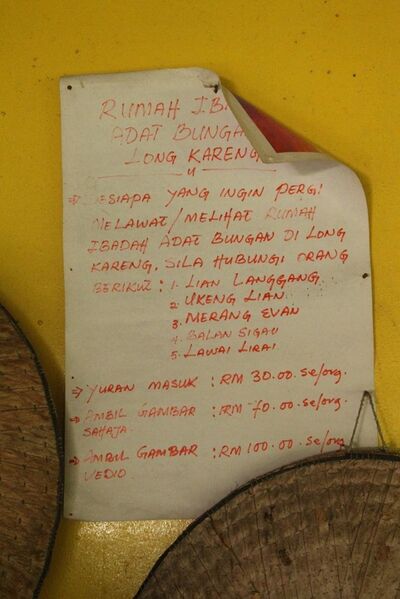 RUMAH
ADAT BUNGAN
LONG KARENG
⇒ SESIAPA YANG INGIN PERGI
MELAWAT/MELIHAT RUMAH
IBADAH ADAT BUNGAN DI LONG
KARENG, SILA HUBUNGI ORANG
BERIKUT : 1. LIAN LANGGANG
2. UKENG LIAN
3. MERANG EVAN
4. BALAN SIGAU
5. LAWAI LIRAI
⇒ YURAN MASUK : RM 30.00 se/org.
⇒ AMBIL GAMBAR : RM 70.00 se/org.
SAHAJA.
⇒ AMBIL GAMBAR : RM 100.00 se/org
VEDIO